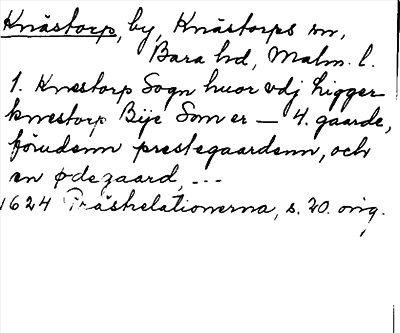 Knästorp, by, Knästorps sn,
Bara hd, Malm. l.
1. Knestorp Sogn huor vdj ligger
knestorp Bÿe Som er — 4. gaarde,
förudenn prestegaardenn, och
en ødegaard, ---
1624 Prästrelationerna, s. 20. orig.